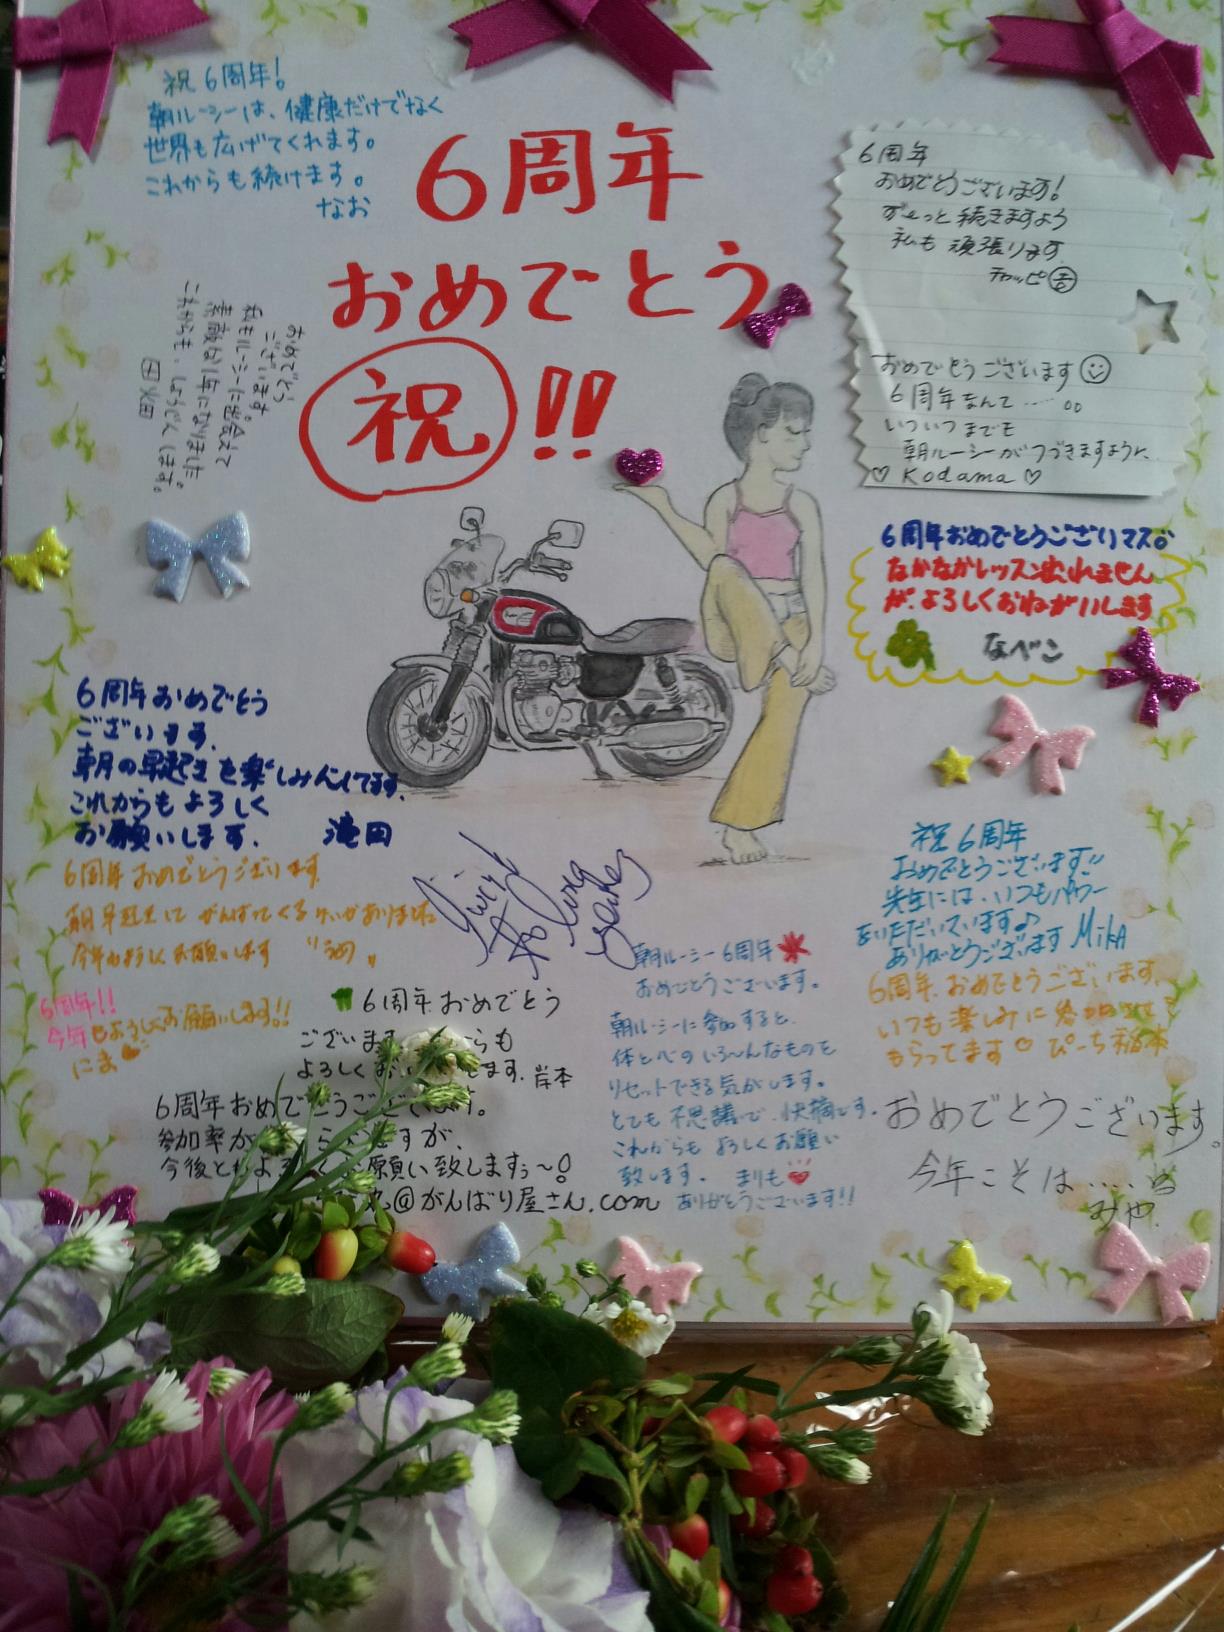 祝6周年!
朝ルーシーは、健康だけでなく
世界も広げてくれます。
これからも続けます。
なお
6周年
おめでとう
祝!!
6周年
おめでとうございます!
ずーっと続きますよう
私も頑張ります
チャッピ
おめでとうございます
6周年なんて……
いついつまでも
朝ルーシーがつづきますように
♡Kodama♡
おめでとう
ございます。
私もルーシーに出会えて
素敵な1年になりました。
これからも、
6周年おめでとうございマス
なかなかレッスン出れません
が、よろしくおねがいします
なべこ
6周年おめでとう
ございます。
朝の早起きを楽しみにしてます。
これからもよろしく
お願いします。 滝田
6周年おめでとうございます
今年もよろしくお願いします
6周年!!
今年もよろしくお願いします!!
にま
6周年おめでとう
ございます らも
よろしく します。岸本
6周年おめでとうございます。
参加率が ですが、
今後とも 願い致しますぅ~
@がんばり屋さん.com
朝ルーシー6周年
おめでとうございます。
朝ルーシーに参加すると、
体と心のいろ~んなものを
リセットできる気がします。
とても不思議で、快適です。
これからもよろしくお願い
致します。 まりも
ありがとうございます!!
祝6周年
おめでとうございます!!
先生には、いつもパワー
をいただいています♪
ありがとうございます MikA
6周年、おめでとうございます。
いつも楽しみに参加させて
もらってます♡ ぴーち
おめでとうございます。
今年こそは……
みや